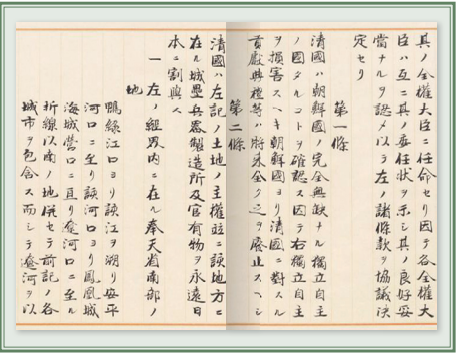 其ノ全權大臣ニ任命セリ因テ各全權大
臣ハ互ニ其ノ委任狀ヲ示シ其ノ良好妥
當ナルヲ認メ以テ左ノ諸條款ヲ協議決
定セリ
第一條
清國ハ朝鮮國ノ完全無缺ナル獨立自主
ノ國タルコトヲ確認ス因テ右獨立自主
ヲ損害スヘキ朝鮮國ヨリ清國ニ對スル
貢獻典禮等ハ將來全ク之ヲ廢止スヘシ
第二條
清國ハ左記ノ土地ノ主權竝ニ該地方ニ
在ル城壘兵器製造所及官有物ヲ永遠日
本ニ割與ス
一 左ノ經界内ニ在ル奉天省南部ノ
地
鴨綠江口ヨリ該江ヲ溯リ安平
河口ニ至リ該河口ヨリ鳳凰城
海城營口ニ亘リ遼河口ニ至ル
折線以南ノ地併セテ前記ノ各
城市ヲ包含ス而シテ遼河ヲ以